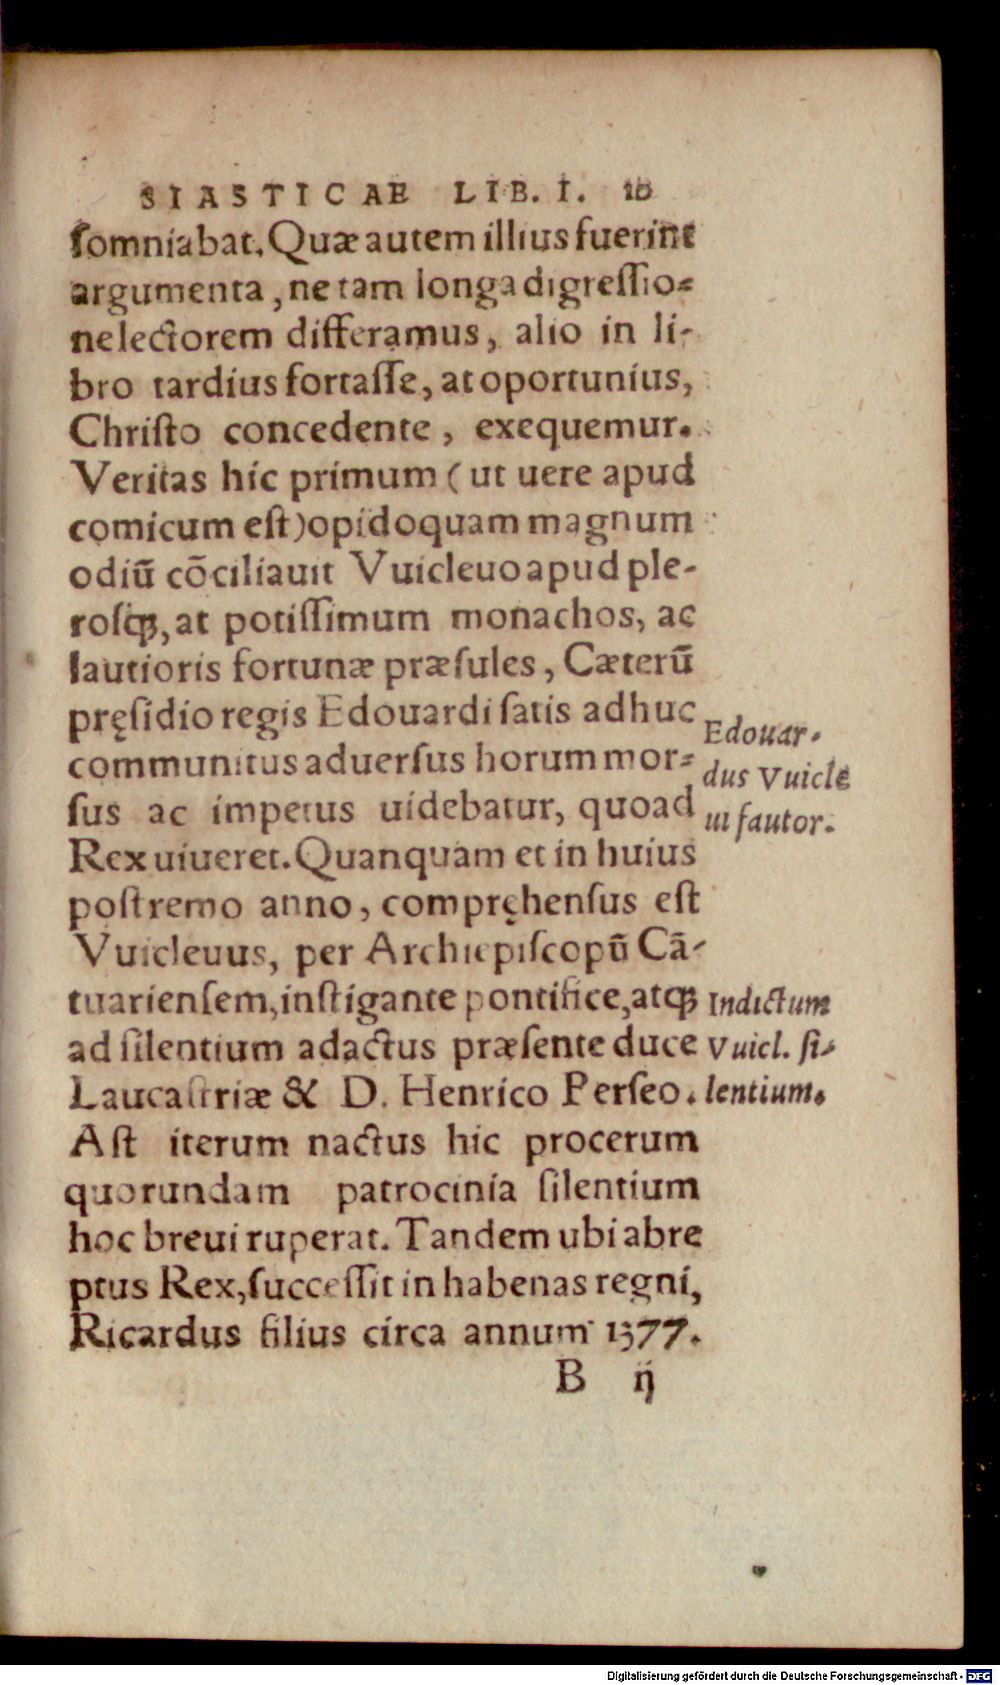 SIASTICAE LIB. I. 10
somniabat. Quæ autem illius fuerint
argumenta, ne tam longa digressio-
ne lectorem differamus, alio in li-
bro tardius fortasse, at oportunius,
Christo concedente, exequemur.
Veritas hic primum (ut uere apud
comicum est) opidoquam magnum
odiū cōciliauit Vuicleuo apud ple-
rosqꝫ, at potissimum monachos, ac
lautioris fortunæ præsules, Cæterū
pręsidio regis Edouardi satis adhuc
communitus aduersus horum mor-
sus ac impetus uidebatur, quoad
Rex uiueret. Quanquam et in huius
postremo anno, compręhensus est
Vuicleuus, per Archiepiscopū Cā-
tuariensem, instigante pontifice, atqꝫ
ad silentium adactus præsente duce
Laucastriæ & D. Henrico Perseo.
Ast iterum nactus hic procerum
quorundam patrocinia silentium
hoc breui ruperat. Tandem ubi abre
ptus Rex, successit in habenas regni,
Ricardus filius circa annum 1377.
B ij
Edouar-
dus Vuicle
ui fautor.
Indictum
Vuicl. si-
lentium.
Digitalisierung gefördert durch die Deutsche Forschungsgemeinschaft - DFG